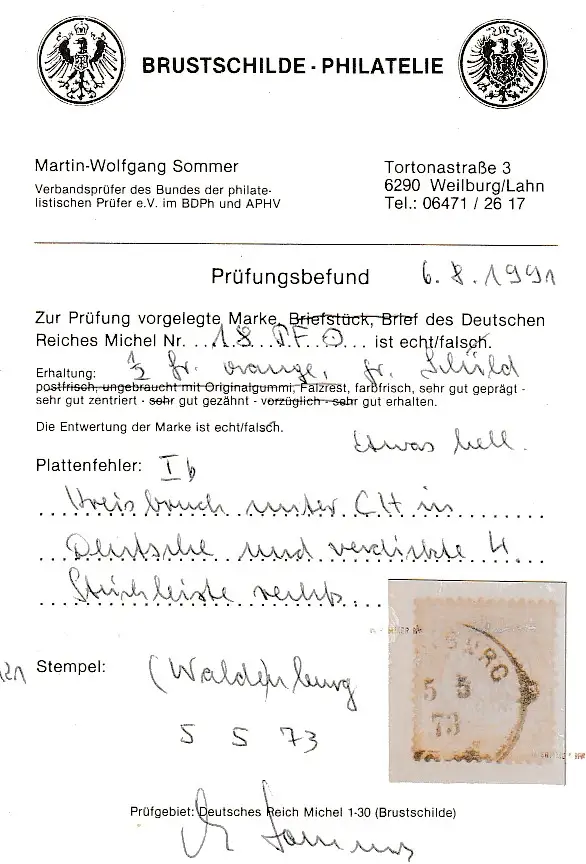 BRUSTSCHILDE - PHILATELIE
Martin-Wolfgang Sommer
Verbandsprüfer des Bundes der phila­te-
listischen Prüfer e.V. im BDPh und APHV
Tortonastraße 3
6290 Weilburg/Lahn
Tel.: 06471 / 26 17
Prüfungsbefund 6. 8. 1991
Zur Prüfung vorgelegte Marke, Briefstück, Brief des Deutschen
Reiches Michel Nr. ...18 PF ... ist echt/falsch.
½ Gr. orange, gr. Schild
Erhaltung:
postfrisch, ungebraucht mit Originalgummi, Falzrest, farbfrisch, sehr gut geprägt -
sehr gut zentriert - sehr gut gezähnt - vorzüglich - sehr gut erhalten.
Die Entwertung der Marke ist echt/falsch.
Etwas hell.
Plattenfehler: I b
Kreisbruch unter CH in
Deutsche und verdickte
rechts
Stempel: (Walden)burg
5 5 73
BURG
5 5
73
Prüfgebiet: Deutsches Reich Michel 1-30 (Brustschilde)
Sommer